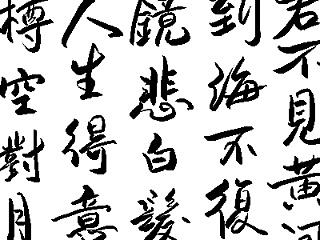 君不見黃河
到海不復
鏡悲白髮
人生得意
樽空對月